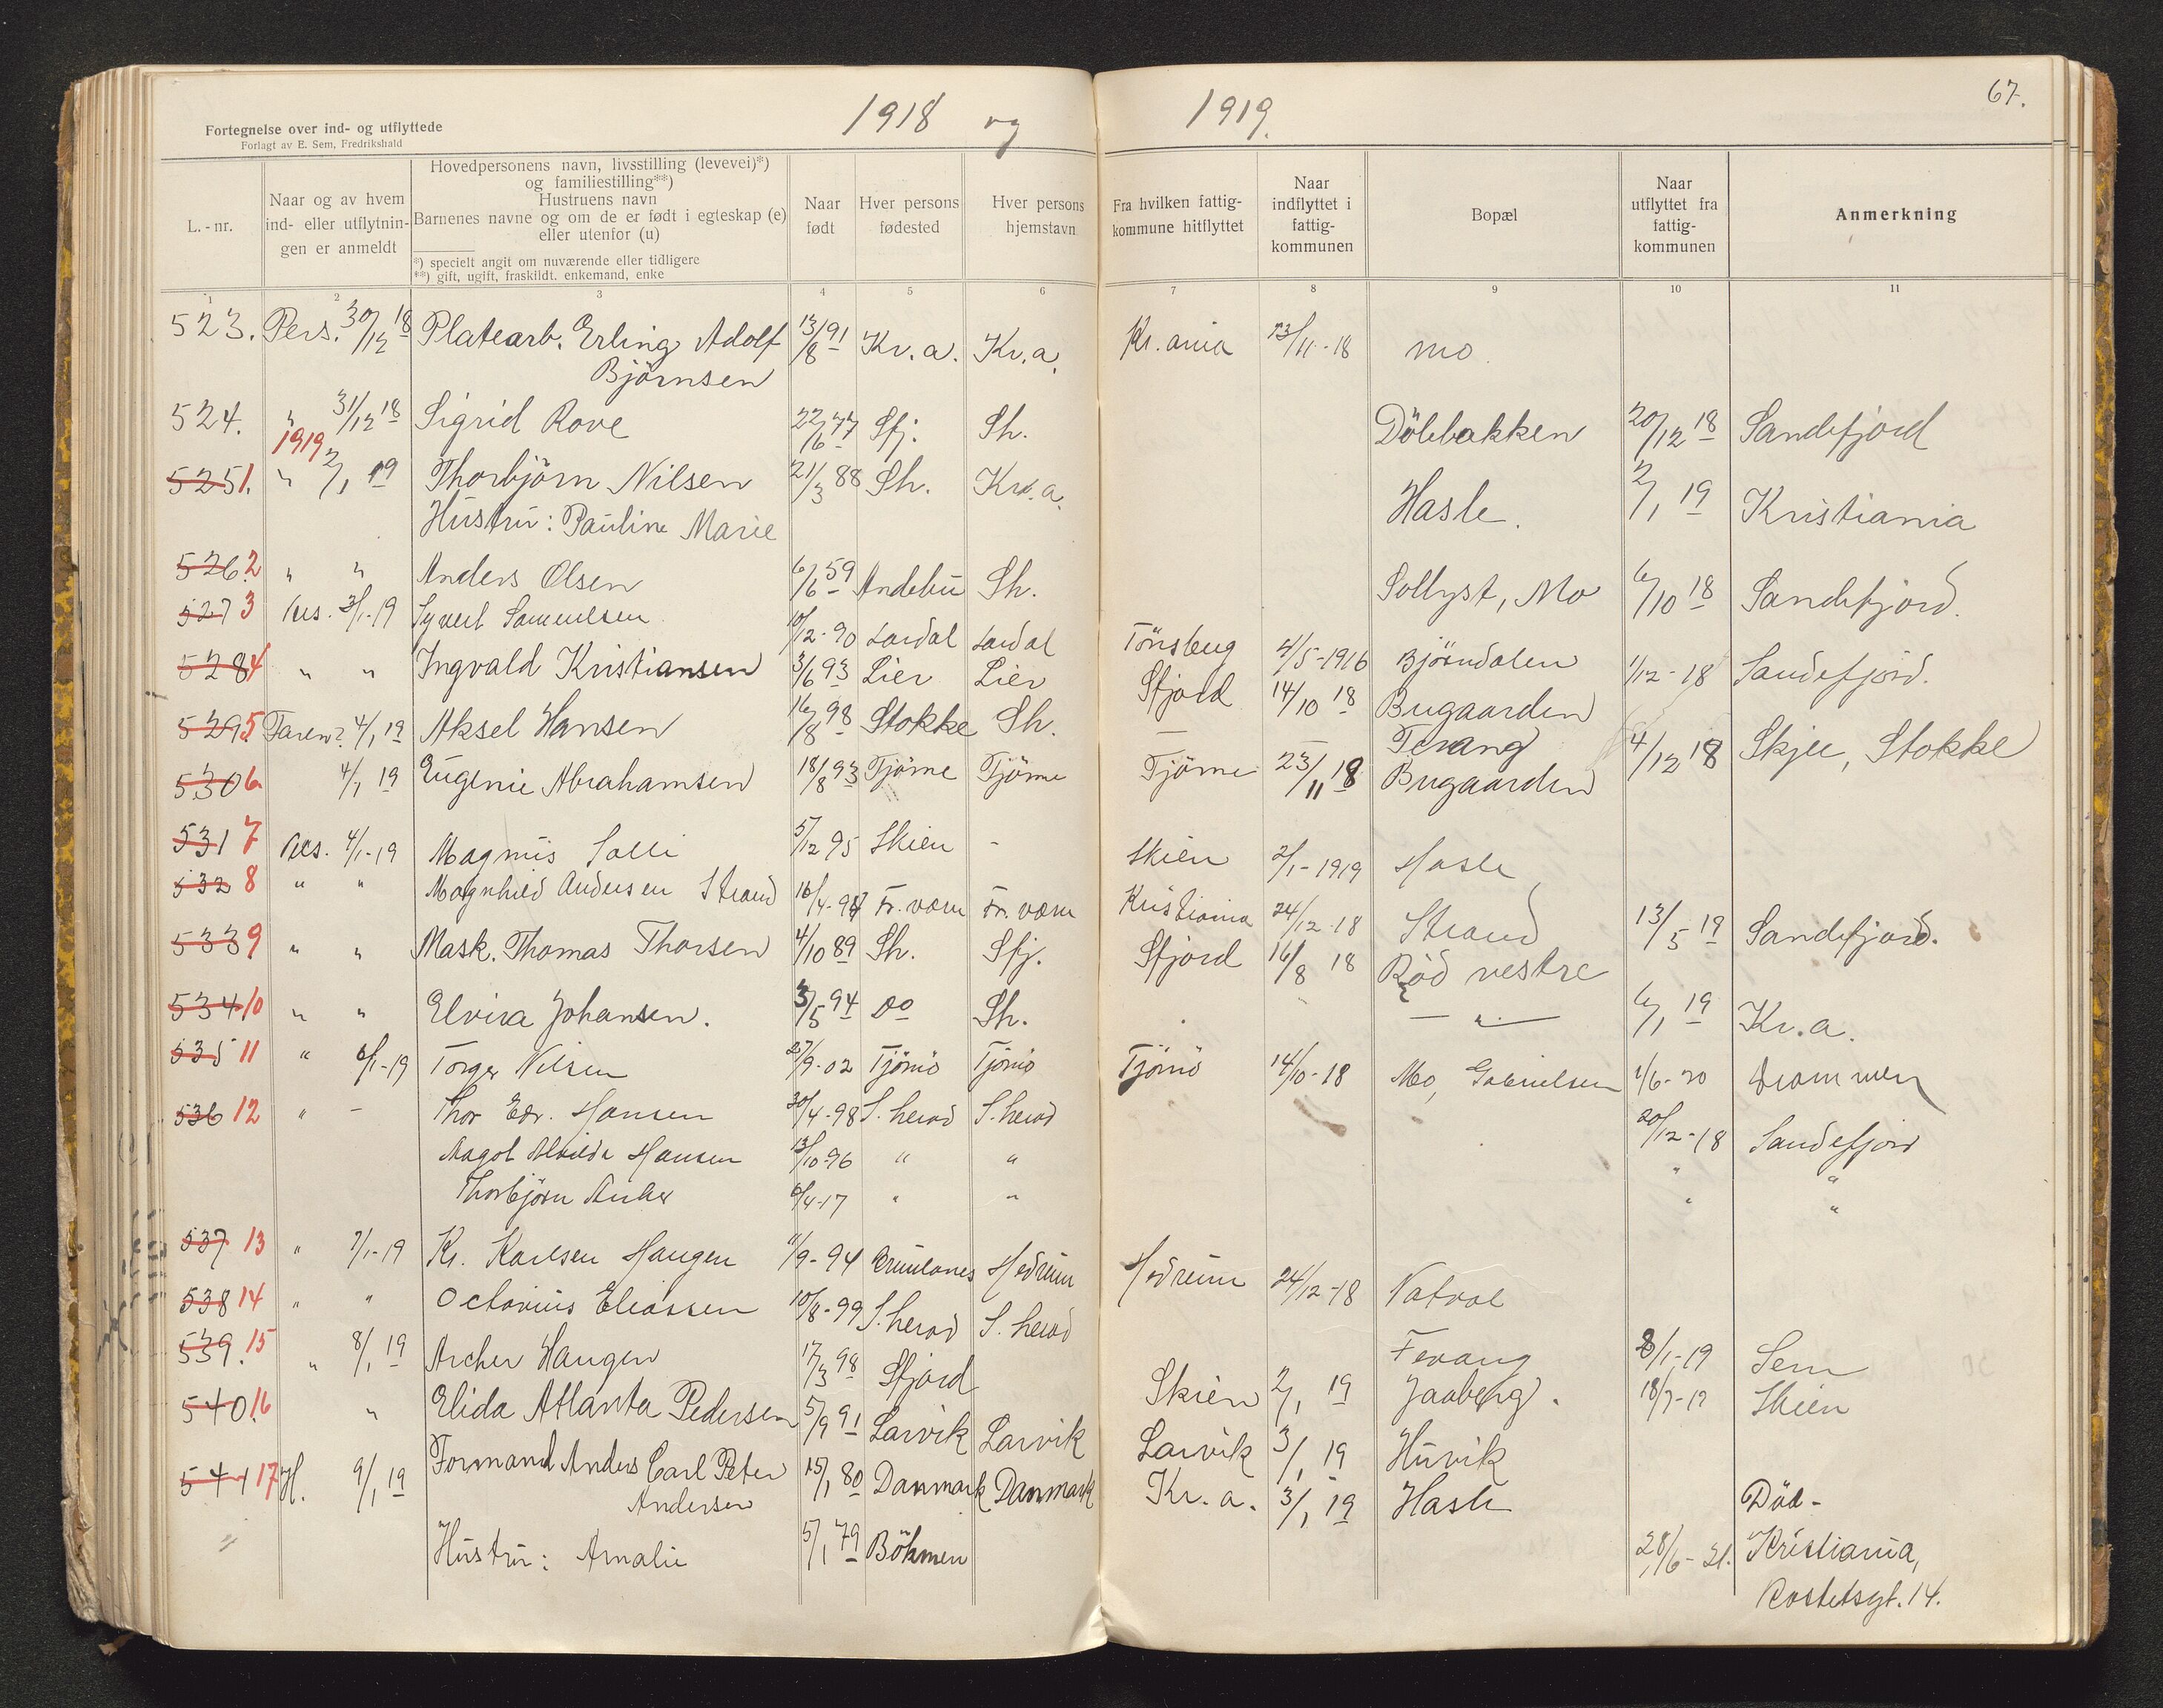 1918 og 1919.
67.
Fortegnelse over ind- og utflyttede
Forlagt av E. Sem, Fredrikshald
L.-nr.
Naar og av hvem ind- eller utflytnin- gen er anmeldt
Hovedpersonens navn, livsstilling (levevei)*)
og familiestilling**)
Hustruens navn
Barnenes navne og om de er født i egteskap (e)
eller utenfor (u)
*) specielt angit om nuværende eller tidligere
**) gift, ugift, fraskildt. enkemand, enke
Naar født
Hver persons fødested
Hver persons hjemstavn
Fra hvilken fattig- kommune hitflyttet
Naar indflyttet i fattig- kommunen
Bopæl
Naar utflyttet fra fattig- kommunen
Anmerkning
1 2 3 4 5 6 7 8 9 10 11
523. Pers. 30/12 18 Platearb. Erling Adolf 13/8 91 Kr.a. Kr.a. Kr.ania 13/11-18 Mo.
Björnsen
524. " 31/12 18 Sigrid Rove 22/6 77 Sfj. Sh. Dölebakken 20/12 18 Sandefjord
1919
525 1. " 2/1 19 Thorbjörn Nilsen 21/3 88 Sh. Kr.a. Hasle. 2/1 19 Kristiania
Hustru: Pauline Marie
526 2 " " Anders Olsen 6/6 59 Andebu Sh. Sollyst, Mo 6/10 18 Sandefjord.
527 3 Pers. 3/1-19 Syvert Samuelsen 10/12-90 Lardal Lardal Tönsberg 4/5-1916 Bjørndalen 1/12-18 Sandefjord.
528 4 " " Ingvald Kristiansen 3/6 93 Lier Lier Sfjord 14/10 18 Bugaarden
529 5 4/1 19 Aksel Hansen 16/8 98 Stokke Sh. — — Fevang 4/12 18 Skjee, Stokke
530 6 4/1 19 Eugenie Abrahamsen 18/8 93 Tjöme Tjöme Tjöme 23/11 18 Bugaarden
531 7 Pers. 4/1-19 Magnus Solli 5/12 95 Skien - Skien 2/1-1919 Hasle
532 8 " " Magnhild Andersen Strand 16/4-97 Fr. værn Fr. værn Kristiania 24/12-18 Strand 13/5 19 Sandefjord.
533 9 " " Mask. Thomas Thorsen 4/10 89 Sh. Sfj. Sfjord 16/8 18 Röd vestre
534 10 " " Elvira Johansen. 3/5 94 Do Sh. — " — 6/1 19 Kr.a.
535 11 " 6/1-19 Torger Nilsen 27/9-02 Tjömö Tjömö Tjömö 14/10-18 Mo, Gabrielsen 1/6-20 Drammen
536 12 " — Thor Edv. Hansen 30/4-98 S. herad S. herad 20/12-18 Sandefjord
Aagot Alvilde Hansen 13/10-96 " " " "
Thorbjørn Anker 6/4-17 " " " "
537 13 " 7/1-19 Kr. Karlsen Haugen 11/9-94 Brunlanes Hedrum Hedrum 24/12-18 Natvol
538 14 " " Octavius Eliassen 10/8-99 S. herad S. herad
539. 15 " 8/1 19 Archer Haugen 17/3 98 Sfjord Fevang 8/1-19 Sem
540. 16 " Elida Atlanta Pedersen 5/9 91 Larvik Larvik Skien 2/1 19 Jaaberg. 18/7-19 Skien
541 17 H. 9/1 19 Formand Anders Carl Peter 15/1 80 Danmark Danmark Larvik 3/1 19 Huvik
Andersen Kr.a. 3/1 19 Hasle Död-
Hustru: Amalie 5/1 79 Böhmen 28/6-21. Kristiania,
Rostetsgt. 14.